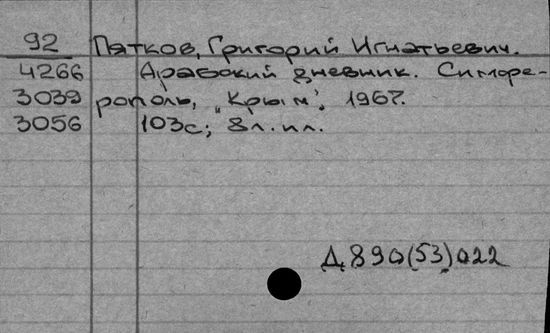 92 Пятков, Григорий Игнатьевич.
4266 Арабский дневник. Симфе-
3039 рополь, "Крым", 1967.
3056 103с; 8л.ил.
Д 890(53)022